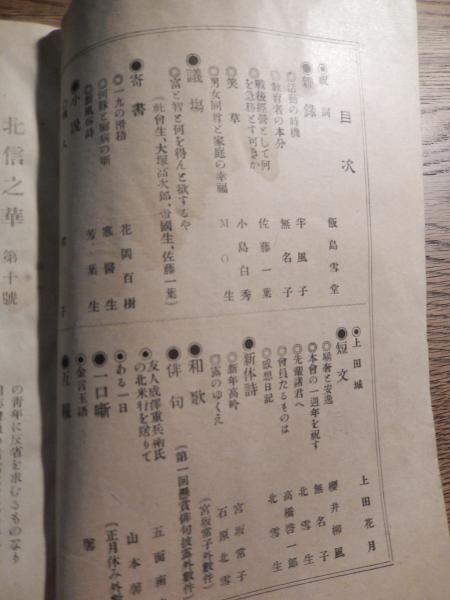 目次
◉祝詞 飯島雪堂
◉語錄
◎活動の時機 半風子
◎教育者の本分 無名子
◎戰後經營として何を急務とす可きか 佐藤一葉
◎笑草 小島白秀
◎男女同尊と家庭の幸福 M O 生
◉議塲
◎富と智と何を得んと欲するや
(社會生、大塚高次郎、帝國生、佐藤一葉)
◉寄書
◎一九の滑稽 花岡百樹
醫生
芳葉生
◉小說
◉上田城 上田花月
◉短文
櫻井柳風
◎本會の一週年を祝す 無名子
◎先輩諸君へ 北雪生
◎會員たるものは 高橋啓一郎
◎感想日記 北雪生
◉新体詩
◎新年高吟 宮坂常子
◎露のゆくえ 石原北雪
◉和歌 (宮坂常子外數件)
◉俳句 (第一回懸賞俳句披露外數件)
◉友人成澤重兵衛氏の北米行を送りて
◉ある一日 山本
◉一口噺 (正月休み外數
◉金言玉語
北信之華 第十號
の靑年に反省を求むるものなり